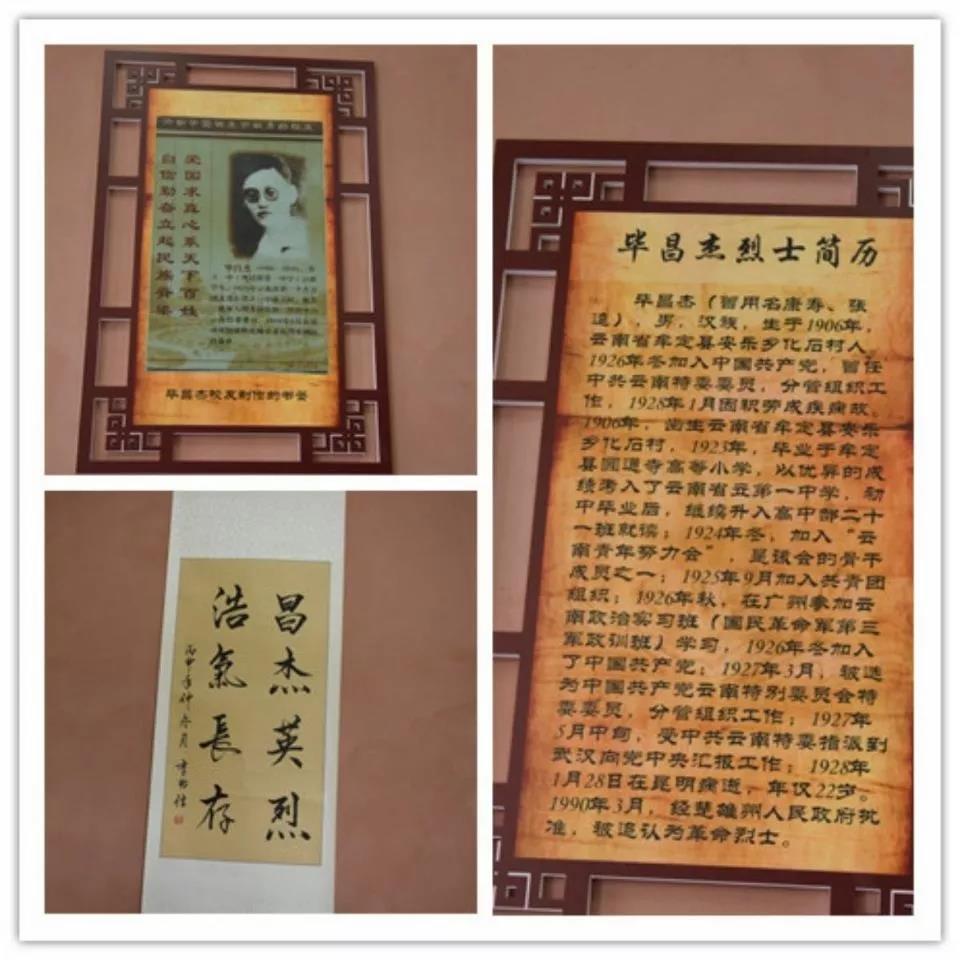 爱国求真心系天下百姓
自信勤奋立起民族脊梁
毕昌杰校友制作的书签
昌杰英烈
浩氣長存
丙申年仲冬月
毕昌杰烈士简历
毕昌杰（曾用名康寿、张
远），男，汉族，生于1906年，
云南省牟定县安乐乡化石村人，
1926年冬加入中国共产党，曾任
中共云南特委委员，分管组织工
作，1928年1月因积劳成疾病故。
1906年，出生云南省牟定县安乐
乡化石村，1923年，毕业于牟定
县圆通寺高等小学，以优异的成
绩考入了云南省立第一中学，初
中毕业后，继续升入高中部二十
一班就读；1924年冬，加入“云
南青年努力会”，是该会的骨干
成员之一；1925年9月加入共青团
组织；1926年秋，在广州参加云
南政治实习班（国民革命军第三
军政训班）学习，1926年冬加入
了中国共产党；1927年3月，被选
为中国共产党云南特别委员会特
委委员，分管组织工作；1927年
5月中旬，受中共云南特委指派到
武汉向党中央汇报工作；1928年
1月28日在昆明病逝，年仅22岁。
1990年3月，经楚雄州人民政府批
准，被追认为革命烈士。